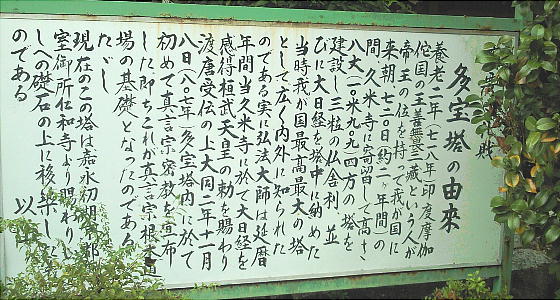 多宝塔の由来
養老二年(七一八年)印度摩伽
陀国の王善無三蔵という人が
帝王の位を持って我が国に
来朝し七二〇日(約二ヶ年間)の
間久米寺に寄留して高さ
八丈(一〇米九九)四方の塔を
建設し三粒の仏舎利並
びに大日経を塔中に納めた
当時我が国最高最大の塔
として広く内外に知られた
のである実に弘法大師は延暦
年間当久米寺に於て大日経を
感得桓武天皇の勅を賜わり
渡唐受伝の上大同二年十一月
八日(八〇七年)多宝塔内に於て
初めて真言宗密教を宣布
しに即ちこれが真言宗根本道
場の基礎となったのである
ただし
現在のこの塔は嘉永初期京都
室御所仁和寺より賜わりし
しへの礎石の上に移築した
のである
以上